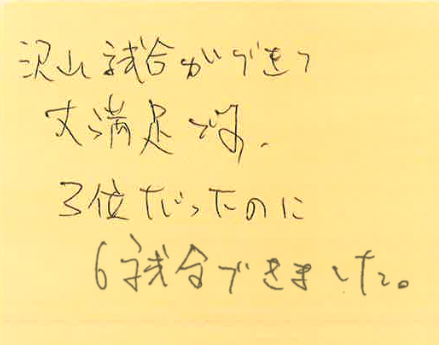 沢山試合ができて
大満足です。
3位だったのに
6試合できました。